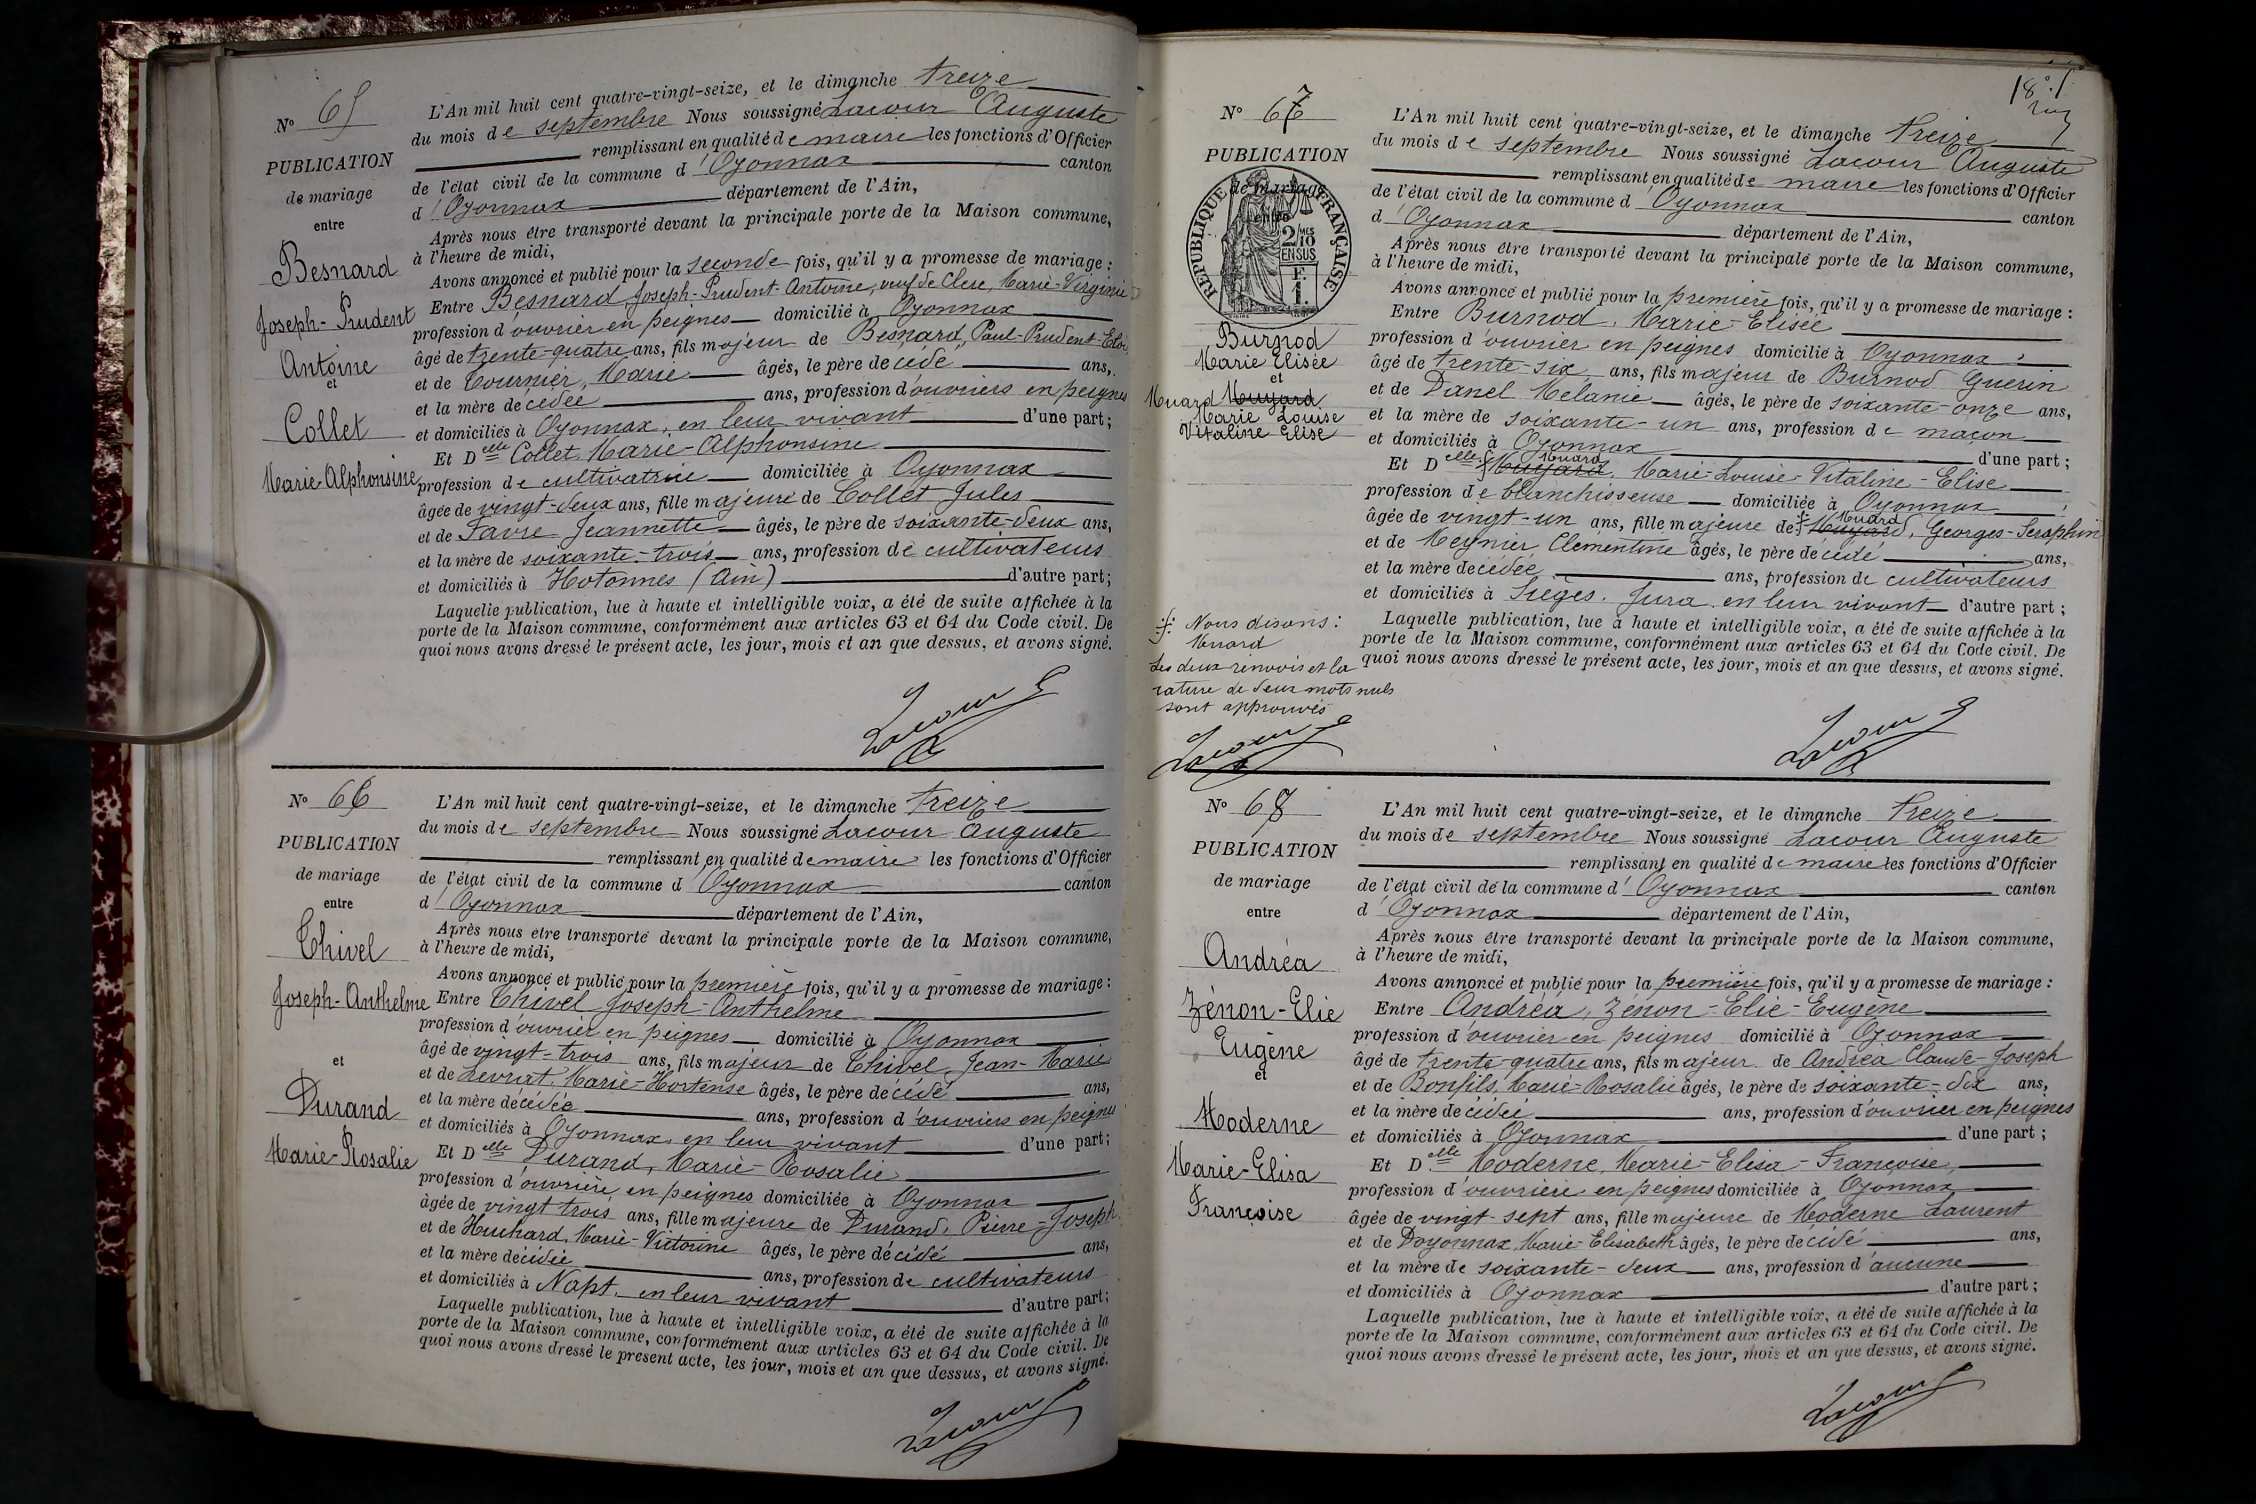 N° 65
PUBLICATION
de mariage
entre
Besnard
Joseph-Prudent
Antoine
et
Collet
Marie-Alphonsine
L'An mil huit cent quatre-vingt-seize, et le dimanche treize
du mois de septembre Nous soussigné Lacour Auguste
remplissant en qualité de maire les fonctions d'Officier
de l'état civil de la commune d'Oyonnax canton
d'Oyonnax département de l'Ain,
Après nous être transporté devant la principale porte de la Maison commune,
à l'heure de midi,
Avons annoncé et publié pour la seconde fois, qu'il y a promesse de mariage :
Entre Besnard Joseph-Prudent-Antoine, veuf de Clerc, Marie-Virginie
profession d'ouvrier en peignes domicilié à Oyonnax
âgé de trente-quatre ans, fils majeur de Besnard, Paul-Prudent-Eloi
et de Cournier, Marie âgés, le père décédé ans,
et la mère décédée ans, profession d'ouvriers en peignes
et domiciliés à Oyonnax, en leur vivant d'une part ;
Et Delle Collet Marie-Alphonsine
profession de cultivatrice domiciliée à Oyonnax
âgée de vingt-deux ans, fille majeure de Collet Jules
et de Favre Jeannette âgés, le père de soixante-deux ans,
et la mère de soixante-trois ans, profession de cultivateurs
et domiciliés à Hotonnes (Ain) d'autre part ;
Laquelle publication, lue à haute et intelligible voix, a été de suite affichée à la
porte de la Maison commune, conformément aux articles 63 et 64 du Code civil. De
quoi nous avons dressé le présent acte, les jour, mois et an que dessus, et avons signé.
Lacour
N° 66
PUBLICATION
de mariage
entre
Chivel
Joseph-Anthelme
et
Durand
Marie-Rosalie
L'An mil huit cent quatre-vingt-seize, et le dimanche treize
du mois de septembre Nous soussigné Lacour Auguste
remplissant en qualité de maire les fonctions d'Officier
de l'état civil de la commune d'Oyonnax canton
d'Oyonnax département de l'Ain,
Après nous être transporté devant la principale porte de la Maison commune,
à l'heure de midi,
Avons annoncé et publié pour la première fois, qu'il y a promesse de mariage :
Entre Chivel Joseph-Anthelme
profession d'ouvrier en peignes domicilié à Oyonnax
âgé de vingt-trois ans, fils majeur de Chivel Jean-Marie
et de Levrat, Marie-Hortense âgés, le père décédé ans,
et la mère décédée ans, profession d'ouvriers en peignes
et domiciliés à Oyonnax, en leur vivant d'une part ;
Et Delle Durand, Marie-Rosalie
profession d'ouvrière en peignes domiciliée à Oyonnax
âgée de vingt trois ans, fille majeure de Durand, Pierre-Joseph
et de Huchard, Marie-Victorine âgés, le père décédé ans,
et la mère décédée ans, profession de cultivateurs
et domiciliés à Napt, en leur vivant d'autre part ;
Laquelle publication, lue à haute et intelligible voix, a été de suite affichée à la
porte de la Maison commune, conformément aux articles 63 et 64 du Code civil. De
quoi nous avons dressé le présent acte, les jour, mois et an que dessus, et avons signé.
Lacour
18e f
N° 67
PUBLICATION
de mariage
entre
RÉPUBLIQUE FRANÇAISE
2/10 MES
EN SUS
F.
1.
Burnod
Marie Elisée
et
Muard Muyard
Marie Louise
Vitaline Elise
L'An mil huit cent quatre-vingt-seize, et le dimanche treize
du mois de septembre Nous soussigné Lacour Auguste
remplissant en qualité de maire les fonctions d'Officier
de l'état civil de la commune d'Oyonnax canton
d'Oyonnax département de l'Ain,
Après nous être transporté devant la principale porte de la Maison commune,
à l'heure de midi,
Avons annoncé et publié pour la première fois, qu'il y a promesse de mariage :
Entre Burnod, Marie-Elisée
profession d'ouvrier en peignes domicilié à Oyonnax
âgé de trente-six ans, fils majeur de Burnod Guerin
et de Danel Melanie âgés, le père de soixante-onze ans,
et la mère de soixante-un ans, profession de maçon
et domiciliés à Oyonnax d'une part ;
Muard
Et Delle Muyard, Marie-Louise-Vitaline-Elise
profession de blanchisseuse domiciliée à Oyonnax
Muard
âgée de vingt-un ans, fille majeure de Muyard, Georges-Seraphin
et de Meynier, Clémentine âgés, le père décédé ans,
et la mère décédée ans, profession de cultivateurs
et domiciliés à Sièges, Jura, en leur vivant d'autre part ;
Laquelle publication, lue à haute et intelligible voix, a été de suite affichée à la
porte de la Maison commune, conformément aux articles 63 et 64 du Code civil. De
quoi nous avons dressé le présent acte, les jour, mois et an que dessus, et avons signé.
Nous disons :
Muard
Les deux renvois et la
rature de deux mots nuls
sont approuvés
Lacour
Lacour
N° 68
PUBLICATION
de mariage
entre
Andréa
Zénon-Elie
Eugène
et
Moderne
Marie-Elisa
Françoise
L'An mil huit cent quatre-vingt-seize, et le dimanche treize
du mois de septembre Nous soussigné Lacour Auguste
remplissant en qualité de maire les fonctions d'Officier
de l'état civil de la commune d'Oyonnax canton
d'Oyonnax département de l'Ain,
Après nous être transporté devant la principale porte de la Maison commune,
à l'heure de midi,
Avons annoncé et publié pour la première fois, qu'il y a promesse de mariage :
Entre Andréa, Zénon-Elie-Eugène
profession d'ouvrier en peignes domicilié à Oyonnax
âgé de trente-quatre ans, fils majeur de Andréa Claude-Joseph
et de Bonfils, Marie-Rosalie âgés, le père de soixante-dix ans,
et la mère décédée ans, profession d'ouvrier en peignes
et domiciliés à Oyonnax d'une part ;
Et Delle Moderne, Marie-Elisa-Françoise,
profession d'ouvrière en peignes domiciliée à Oyonnax
âgée de vingt-sept ans, fille majeure de Moderne Laurent
et de Doyonnax, Marie-Elisabeth âgés, le père décédé ans,
et la mère de soixante-deux ans, profession d'aucune
et domiciliés à Oyonnax d'autre part ;
Laquelle publication, lue à haute et intelligible voix, a été de suite affichée à la
porte de la Maison commune, conformément aux articles 63 et 64 du Code civil. De
quoi nous avons dressé le présent acte, les jour, mois et an que dessus, et avons signé.
Lacour